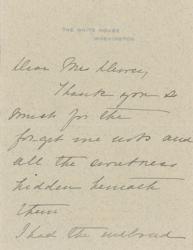 THE WHITE HOUSE
WASHINGTON
Dear Mrs
Thank you so
much for the
forget me nots and
all the sweetness
hidden beneath
them
I had the